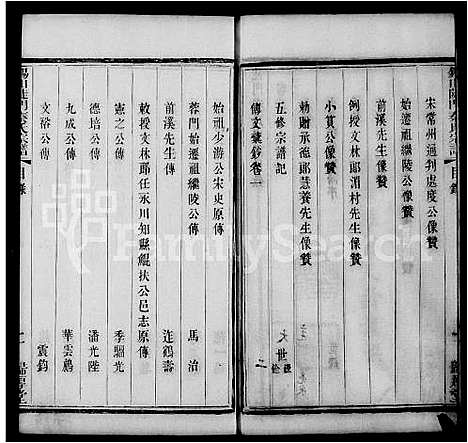 宋常州通判處度公像贊
始遷祖繼陵公像贊
前溪先生像贊
例授文林郎湄村先生像贊
小實公像贊
勅贈承德郎慧養先生像贊
五修宗譜記
大世
傳文彙鈔卷一
二
始祖少游公宋史原傳
蓉門始遷祖繼陵公傳 馬治
前溪先生傳 連鶴壽
敕授文林郎任永川知縣鯤扶公邑志原傳
憲之公傳 季驪光
德培公傳 潘光陛
九成公傳 華雲鵬
文裕公傳 震鈞
目錄
FamilySearch